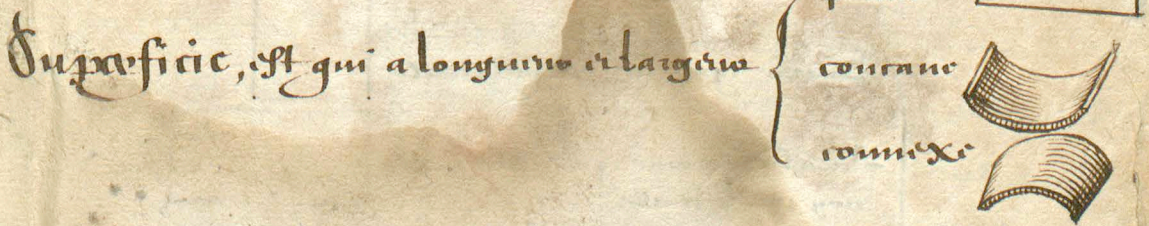 Superficie, est qui a longueur et largeur
concaue
conuexe